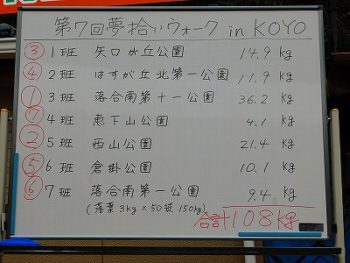 第7回夢拾いウォーク in KOYO
③ 1班 矢口が丘公園 14.9 kg
④ 2班 はすが丘北第一公園 11.9 kg
① 3班 落合南第十一公園 36.2 kg
⑦ 4班 恵下山公園 4.1 kg
② 5班 西山公園 21.4 kg
⑤ 6班 倉掛公園 10.1 kg
⑥ 7班 落合南第一公園 9.4 kg
(落葉 3kg × 50袋 150kg)
合計 108kg